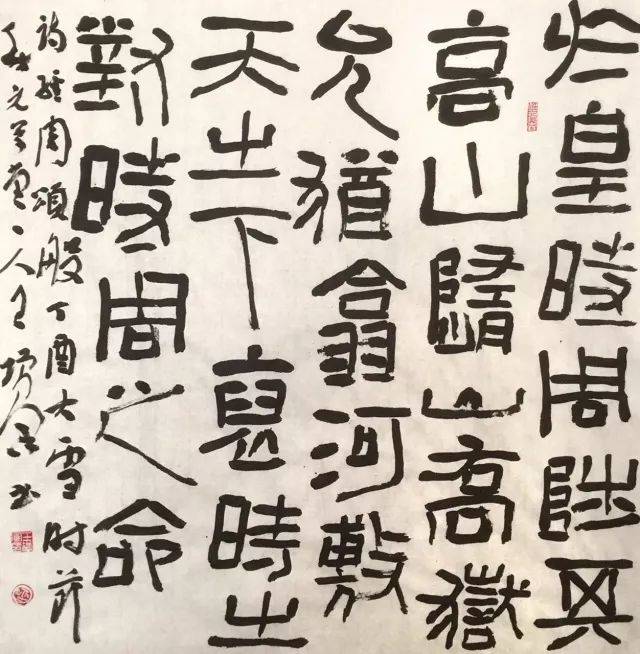 於皇時周陟其
高山嶞山喬嶽
允猶翕河敷
天之下裒時之
對時周之命
詩經周頌般丁酉大雪时節
人王書